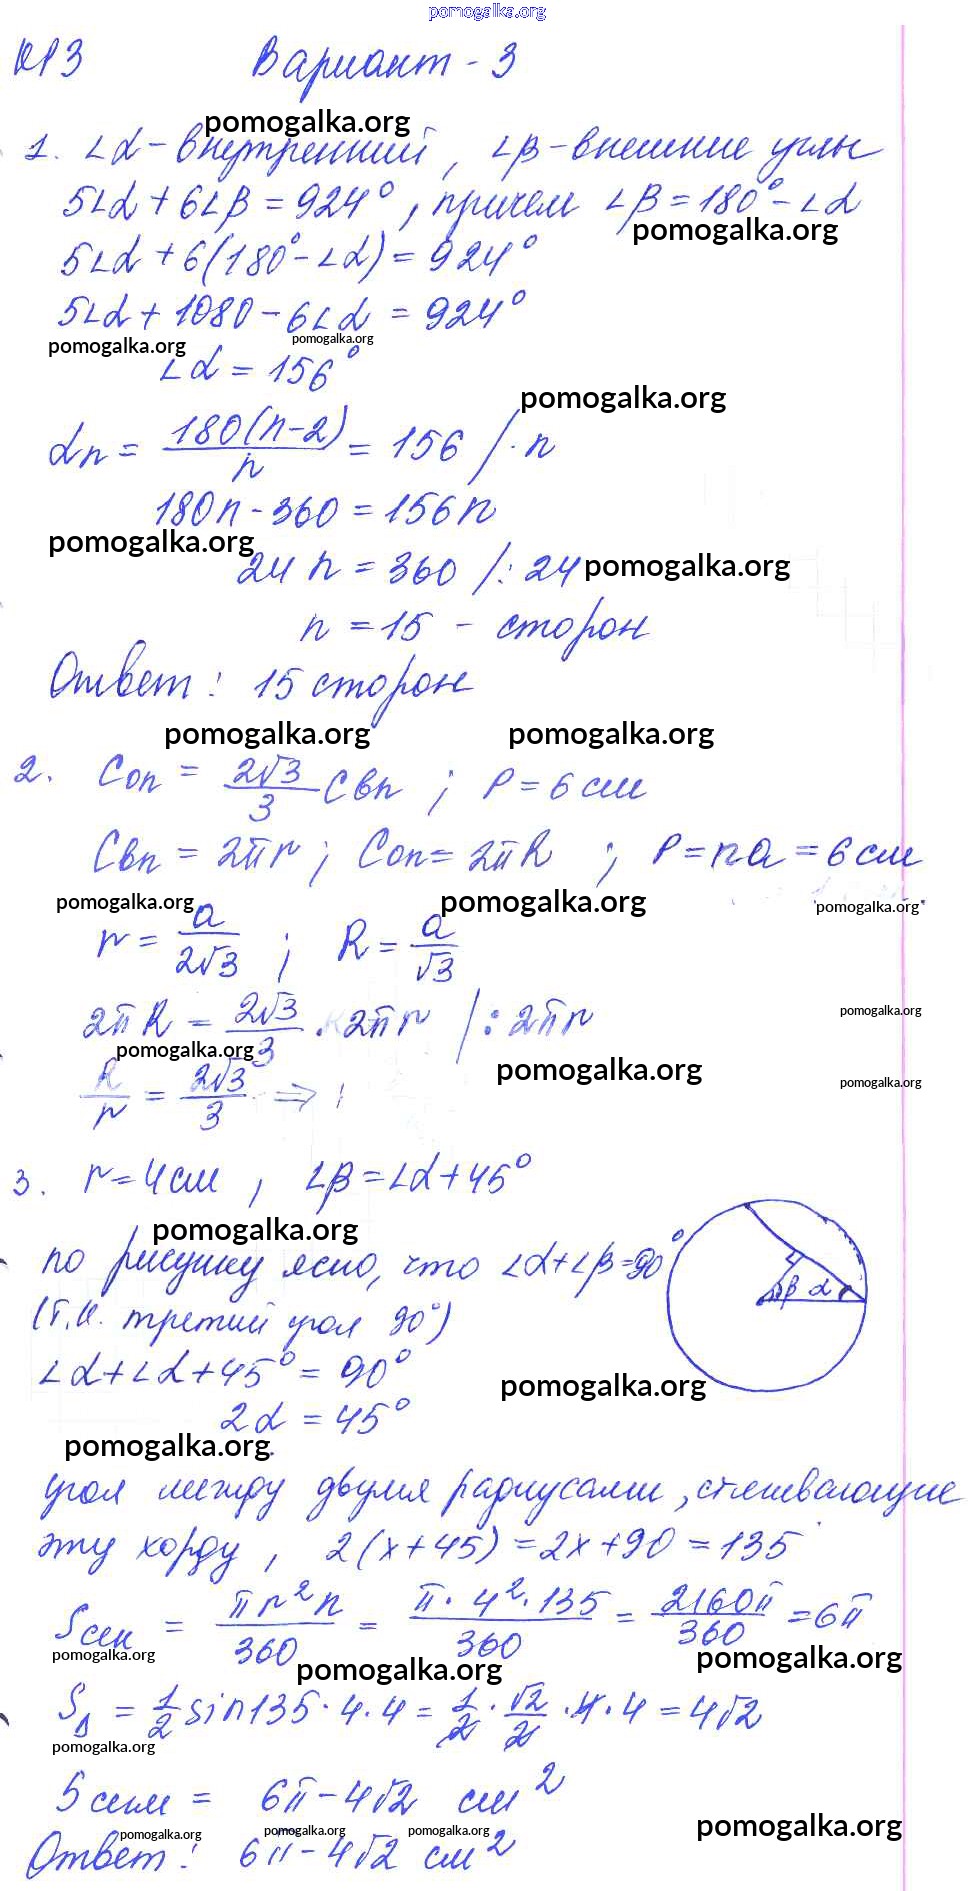 pomogalka.org
КР3 Вариант - 3
pomogalka.org
1. ∠α - внутренний, ∠β - внешние углы
5∠α + 6∠β = 924°, причем ∠β = 180° - ∠α
pomogalka.org
5∠α + 6(180° - ∠α) = 924°
5∠α + 1080 - 6∠α = 924°
pomogalka.org pomogalka.org
∠α = 156°
pomogalka.org
αn = 180(n-2)/n = 156 / · n
180n - 360 = 156n
pomogalka.org
24 n = 360 /: 24 pomogalka.org
n = 15 - сторон
Ответ: 15 сторон
pomogalka.org pomogalka.org
2. Cоп = 2√3/3 Cвп ; P = 6 см
Cвп = 2πr ; Cоп = 2πR ; P = na = 6 см
pomogalka.org pomogalka.org pomogalka.org
r = a/2√3 ; R = a/√3
2πR = 2√3/3 · 2πr /: 2πr
pomogalka.org
pomogalka.org pomogalka.org
R/r = 2√3/3 ⇒
pomogalka.org
3. r = 4 см , ∠β = ∠α + 45°
pomogalka.org
по рисунку ясно, что ∠α + ∠β = 90°
(т.к. третий угол 90°)
β α
∠α + ∠α + 45° = 90°
pomogalka.org
2α = 45°
pomogalka.org
угол между двумя радиусами, стягивающие
эту хорду, 2(x + 45) = 2x + 90 = 135
Sсек = πr²n/360 = π · 4² · 135/360 = 2160π/360 = 6π
pomogalka.org pomogalka.org pomogalka.org
S∆ = 1/2 sin135 · 4 · 4 = 1/2 · √2/2 · 4 · 4 = 4√2
pomogalka.org
Sсегм = 6π - 4√2 см²
pomogalka.org
pomogalka.org pomogalka.org pomogalka.org
Ответ: 6π - 4√2 см²